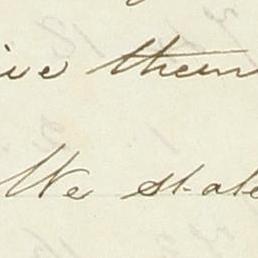 ive them
We state